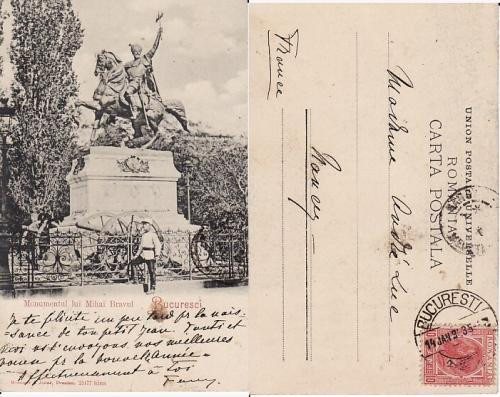 Monumentul lui Mihai Bravul
Bucuresci
Je te félicite un peu tard pr la nais-
sance de ton petit Jean. Tantôt et
moi vs envoyons nos meilleures
voeux pr la nouvelle Année
Affectueusement à toi
Fany
Dresden
UNION POSTALE UNIVERSELLE
ROMANIA
CARTA POSTALA
Madame André Luc
Nancy
France
BUCURESTI
14 JAN